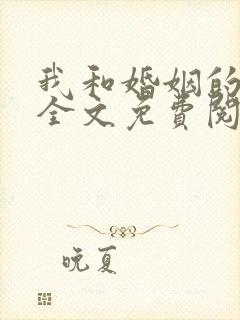 我和婚姻的
全文免费阅
晚夏